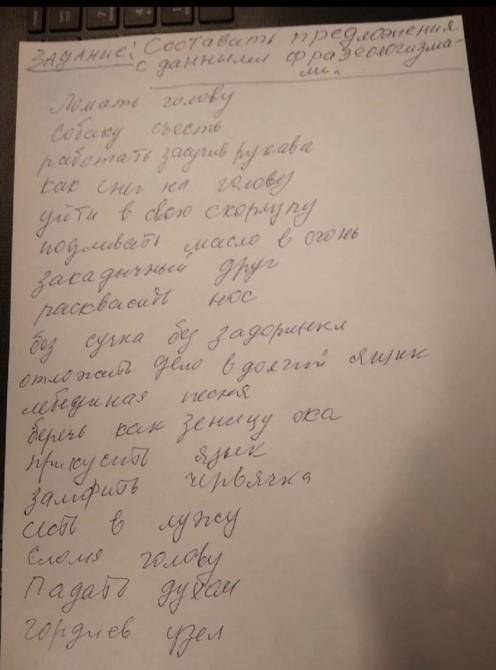 ЗАДАНИЕ: Составить предложения
с данными фразеологизма-
ми.
Ломать голову
собаку съесть
работать засучив рукава
как снег на голову
уйти в свою скорлупу
подливать масло в огонь
закадычный друг
расквасить нос
без сучка без задоринки
отложить дело в долгий ящик
лебединая песня
беречь как зеницу ока
прикусить язык
заморить червячка
сесть в лужу
сломя голову
Падать духом
гордиев узел